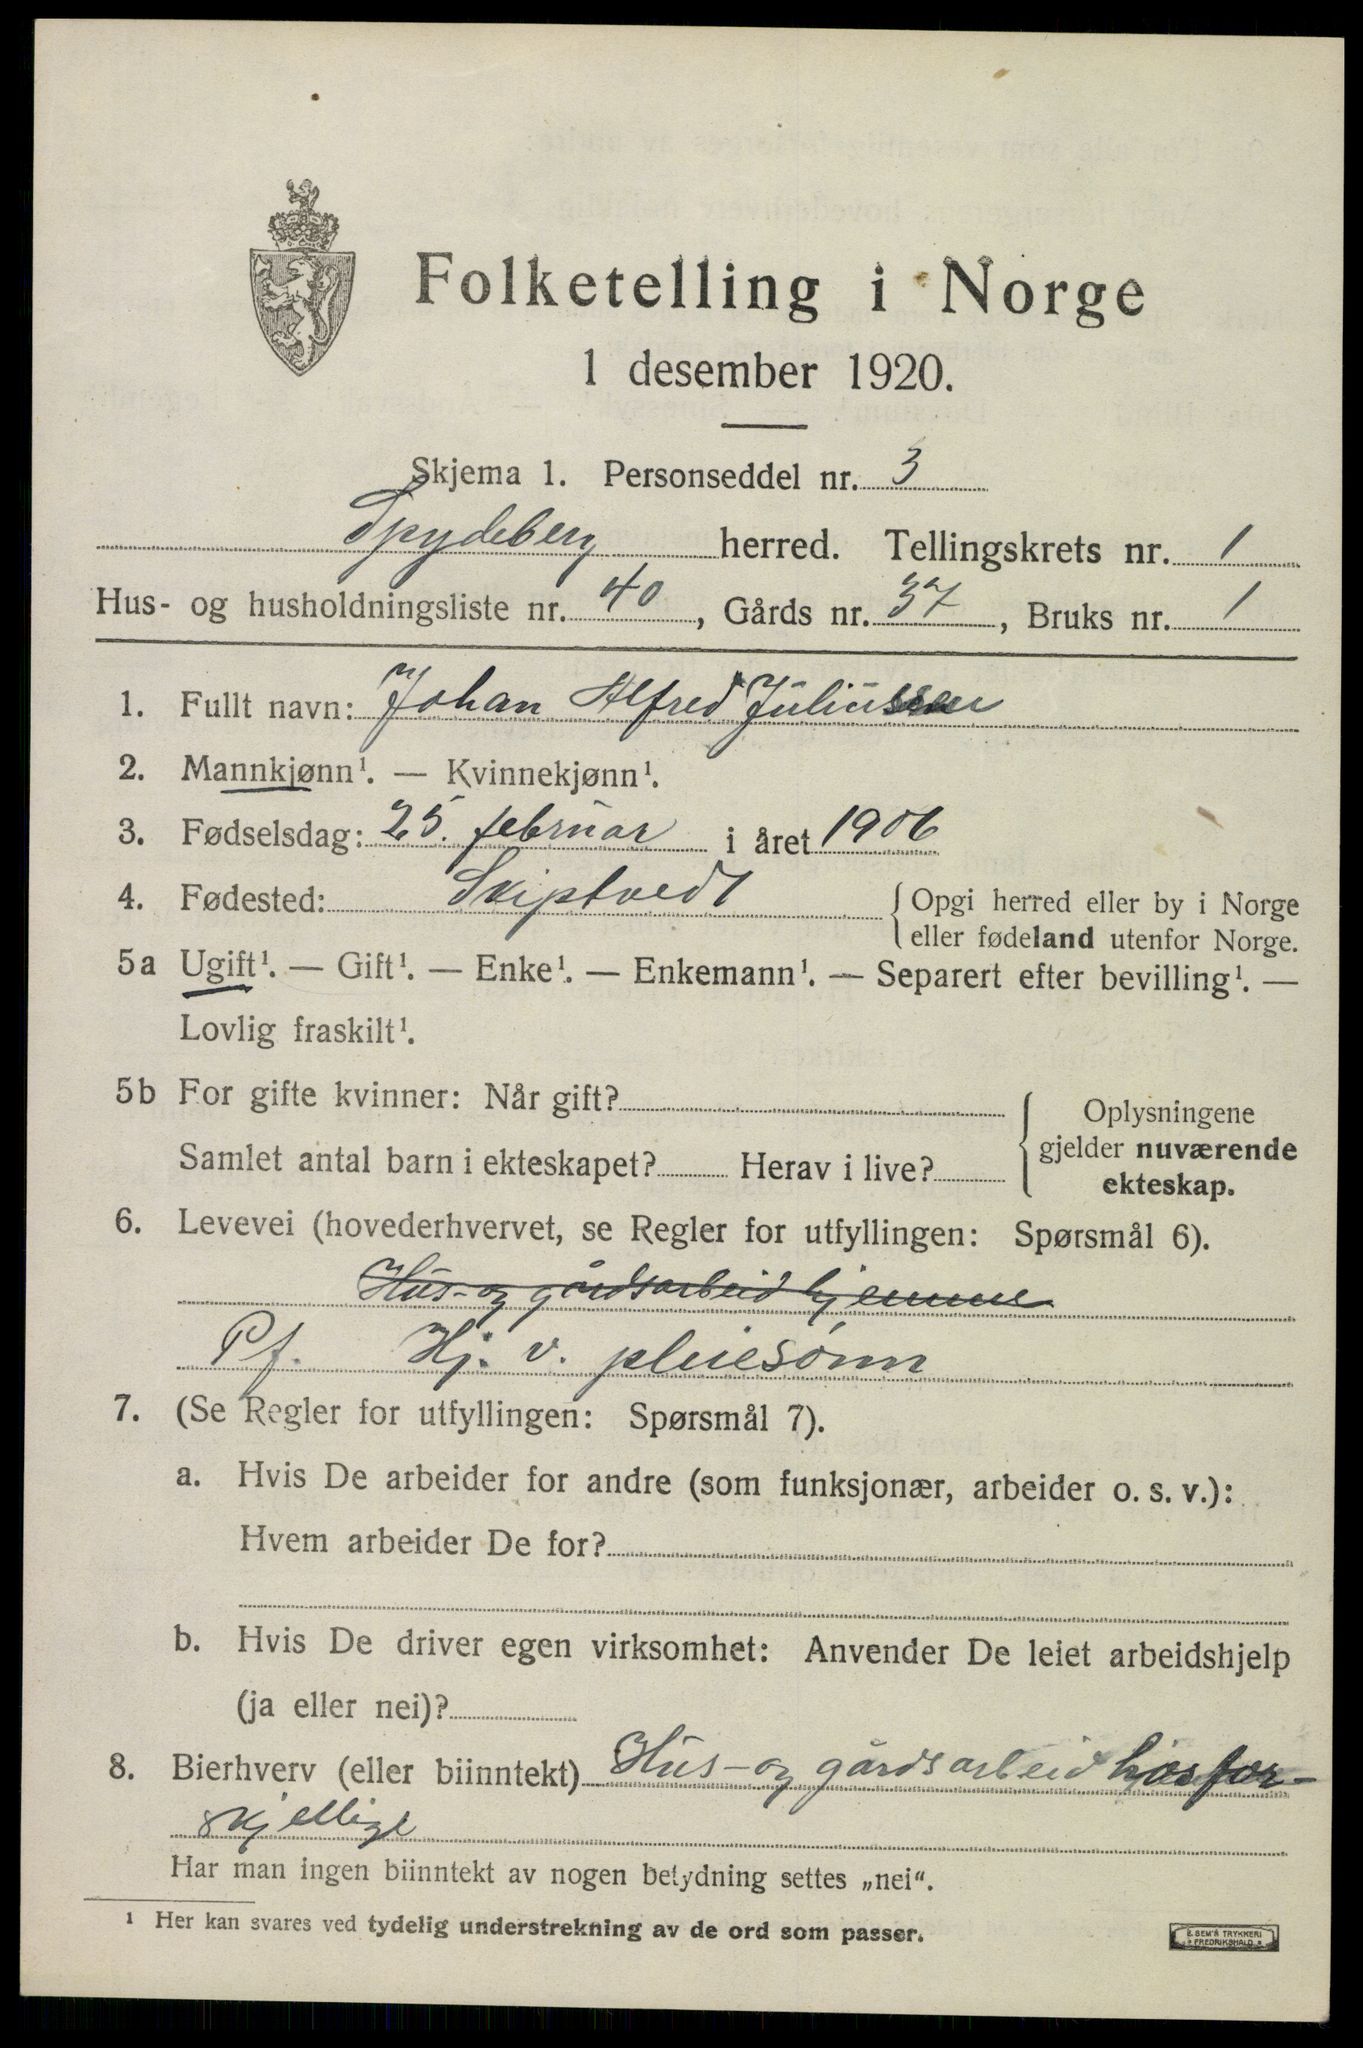 Folketelling i Norge
1 desember 1920.
Skjema 1. Personseddel nr. 3
Spydeberg herred. Tellingskrets nr. 1
Hus- og husholdningsliste nr. 40, Gårds nr. 37, Bruks nr. 1
1. Fullt navn: Johan Alfred Juliussen
2. Mannkjønn¹. — Kvinnekjønn¹.
3. Fødselsdag: 25. februar i året 1906
4. Fødested: Skiptvedt { Opgi herred eller by i Norge
eller fødeland utenfor Norge.
5a Ugift¹. — Gift¹. — Enke¹. — Enkemann¹. — Separert efter bevilling¹. —
Lovlig fraskilt¹.
5b For gifte kvinner: Når gift?
Samlet antal barn i ekteskapet? Herav i live?
{ Oplysningene
gjelder nuværende
ekteskap.
6. Levevei (hovederhvervet, se Regler for utfyllingen: Spørsmål 6).
Hus- og gårdsarbeid hjemme
Pf. Hj. v. pleiesønn
7. (Se Regler for utfyllingen: Spørsmål 7).
a. Hvis De arbeider for andre (som funksjonær, arbeider o. s. v.):
Hvem arbeider De for?
b. Hvis De driver egen virksomhet: Anvender De leiet arbeidshjelp
(ja eller nei)?
8. Bierhverv (eller biinntekt) Hus- og gårdsarbeid hos for-
skjellige
Har man ingen biinntekt av nogen betydning settes „nei“.
¹ Her kan svares ved tydelig understrekning av de ord som passer.
E. SEM'S TRYKKERI
FREDRIKSHALD